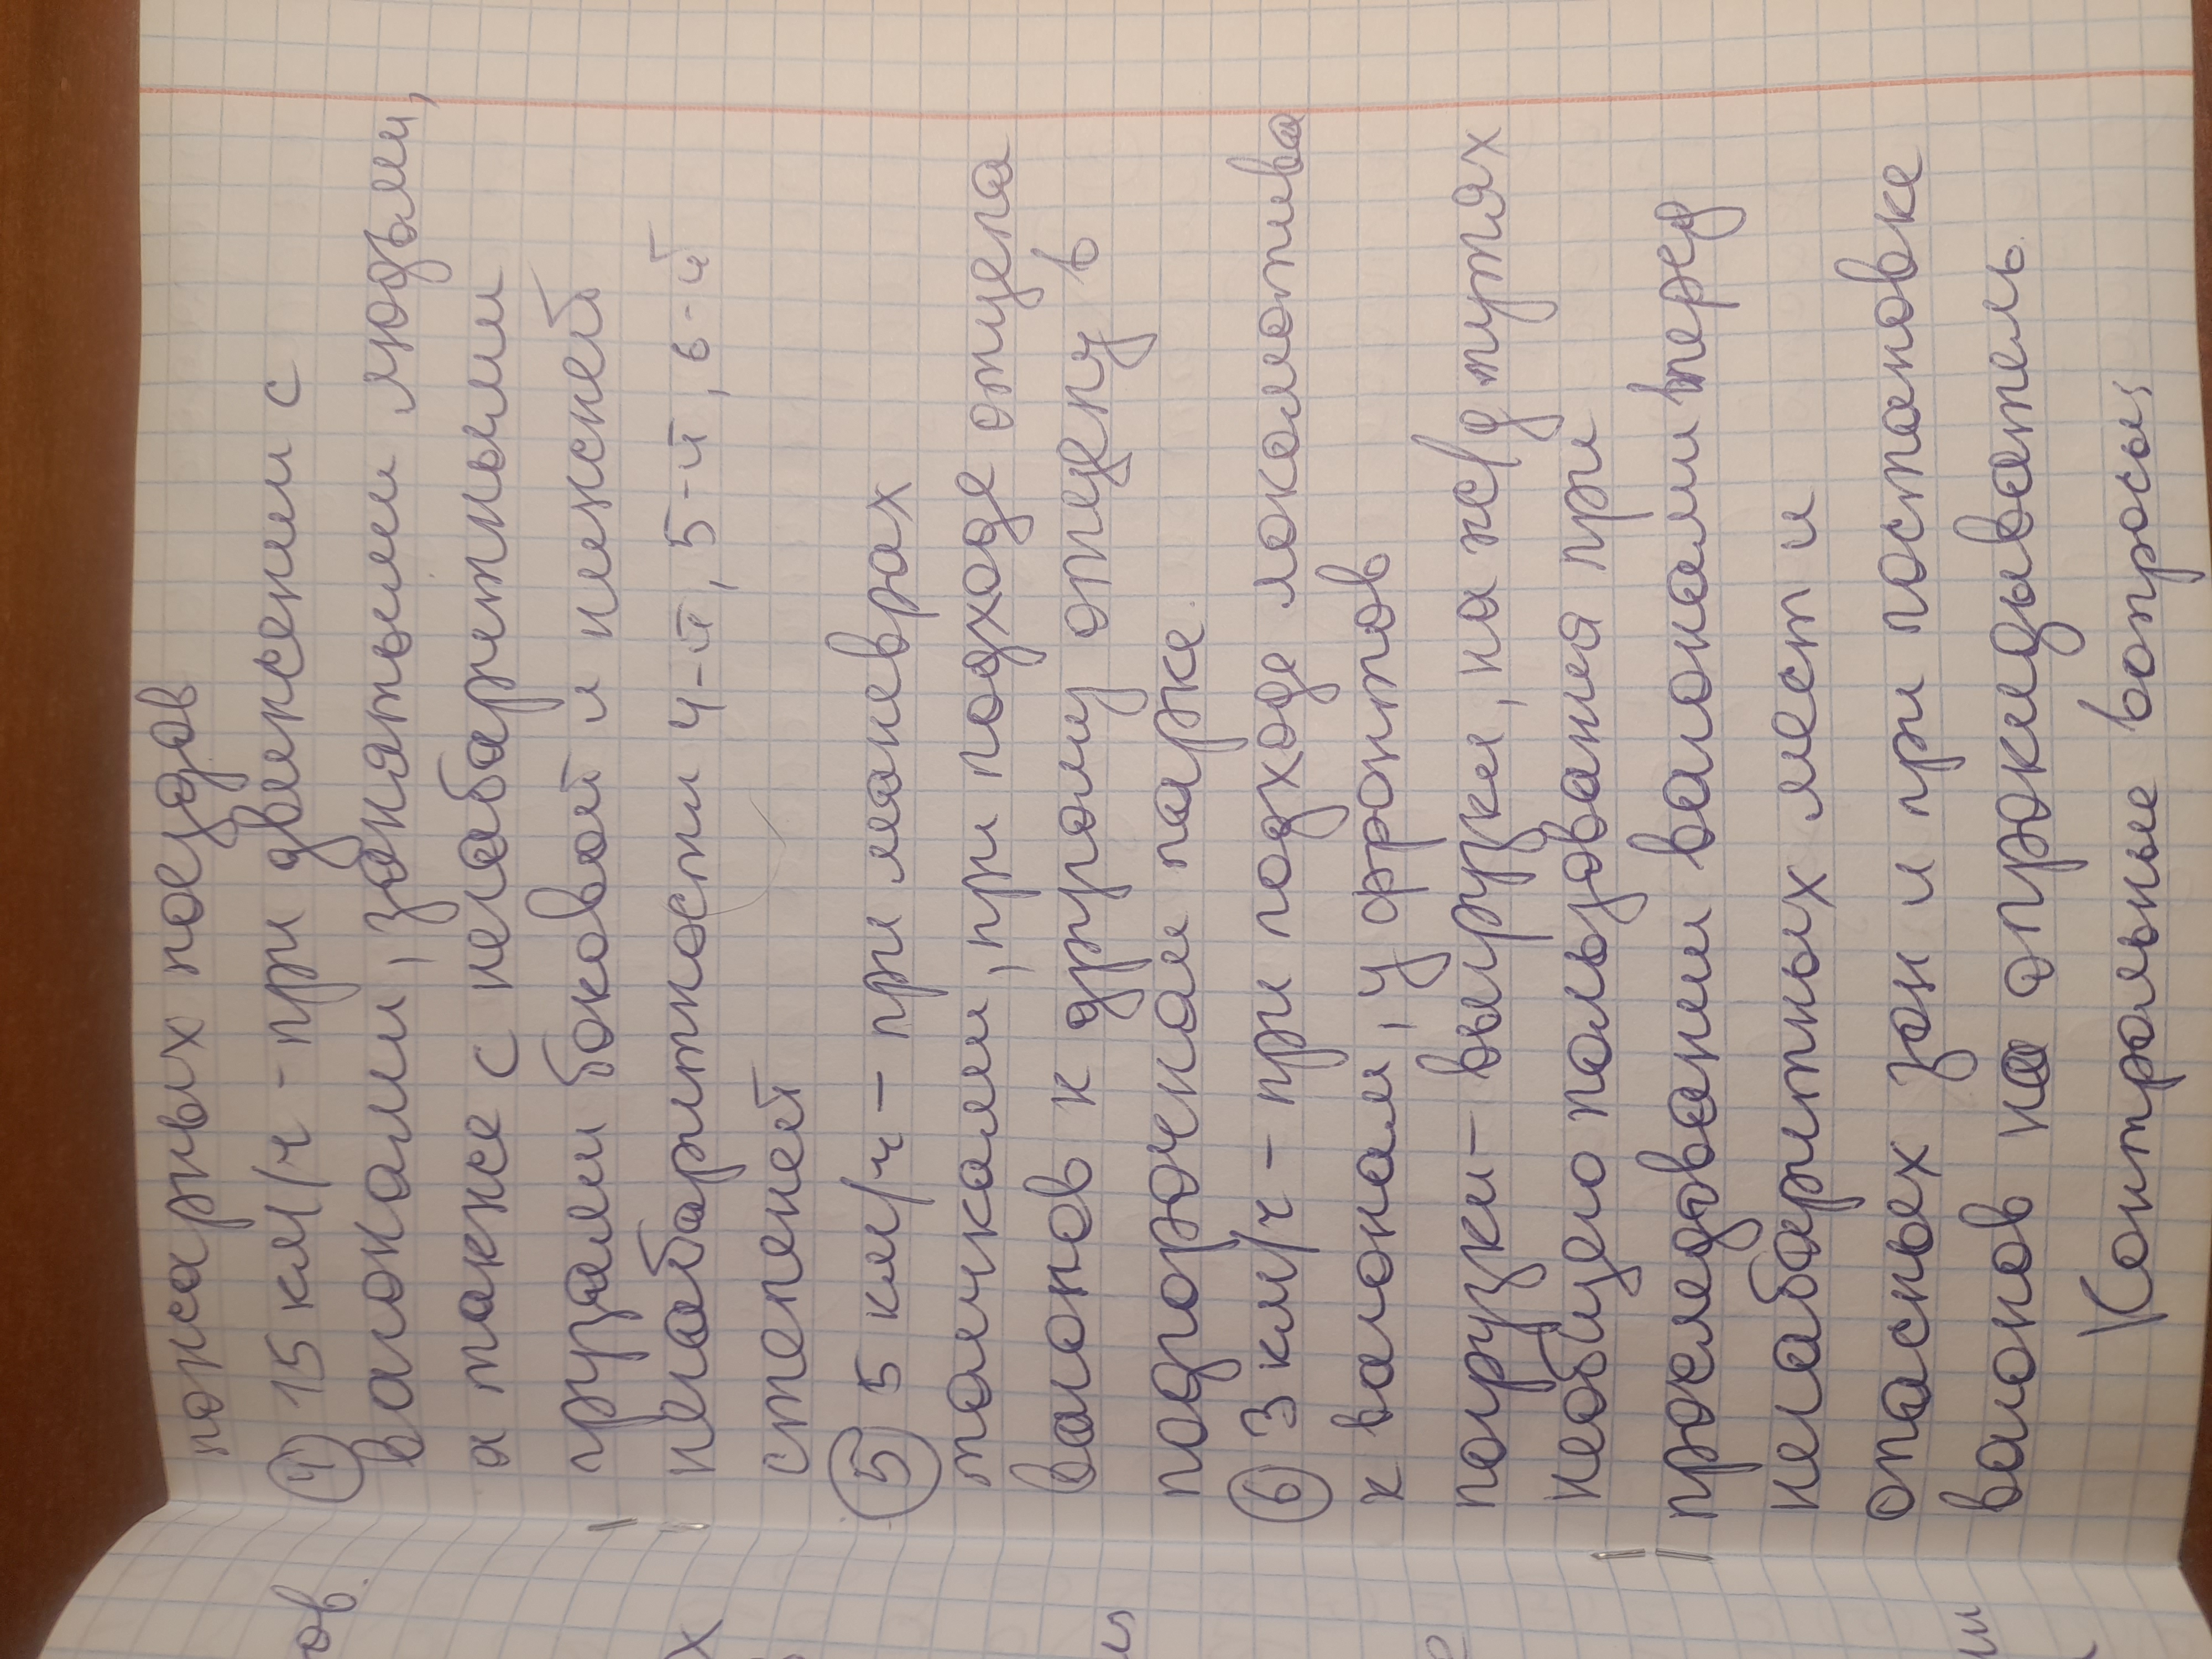 пожарных поездов
④ 15 км/ч - при движении с
вагонами, занятыми людьми,
а также с негабаритными
грузами боковой и нижней
негабаритности 4-й, 5-й, 6-й
степеней
⑤ 5 км/ч - при маневрах
толчками, при подходе отцепа
вагонов к другому отцепу в
подгорочном парке.
⑥ 3 км/ч - при подходе локомотива
к вагонам, у фронтов
погрузки - выгрузки, на ж/д путях
необщего пользования при
проследовании вагонами вперед
негабаритных мест и
опасных зон и при постановке
вагонов на опрокидыватель.
Контрольные вопросы:
ов.
х